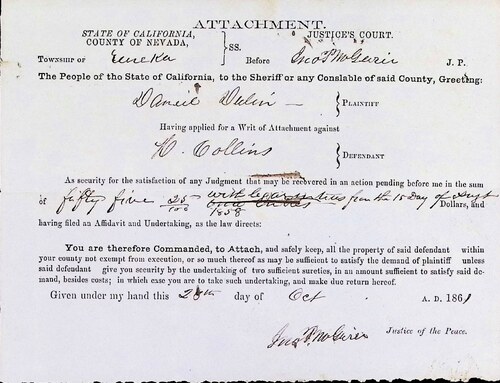 ATTACHMENT.
STATE OF CALIFORNIA, COUNTY OF NEVADA, } SS. JUSTICE'S COURT.
TOWNSHIP OF Eureka Before Jno P McGuire J. P.
The People of the State of California, to the Sheriff or any Constable of said County, Greeting:
Daneil Dulin — } PLAINTIFF
Having applied for a Writ of Attachment against
H. Collins } DEFENDANT
As security for the satisfaction of any Judgment that may be recovered in an action pending before me in the sum
of fifty five 25/100 from the 15 Day of Dollars, and
1858
having filed an Affidavit and Undertaking, as the law directs:
You are therefore Commanded, to Attach, and safely keep, all the property of said defendant within
your county not exempt from execution, or so much thereof as may be sufficient to satisfy the demand of plaintiff unless
said defendant give you security by the undertaking of two sufficient sureties, in an amount sufficient to satisfy said de-
mand, besides costs; in which case you are to take such undertaking, and make due return hereof.
Given under my hand this 28th day of Oct A. D. 1861
Jno P. McGuire Justice of the Peace.